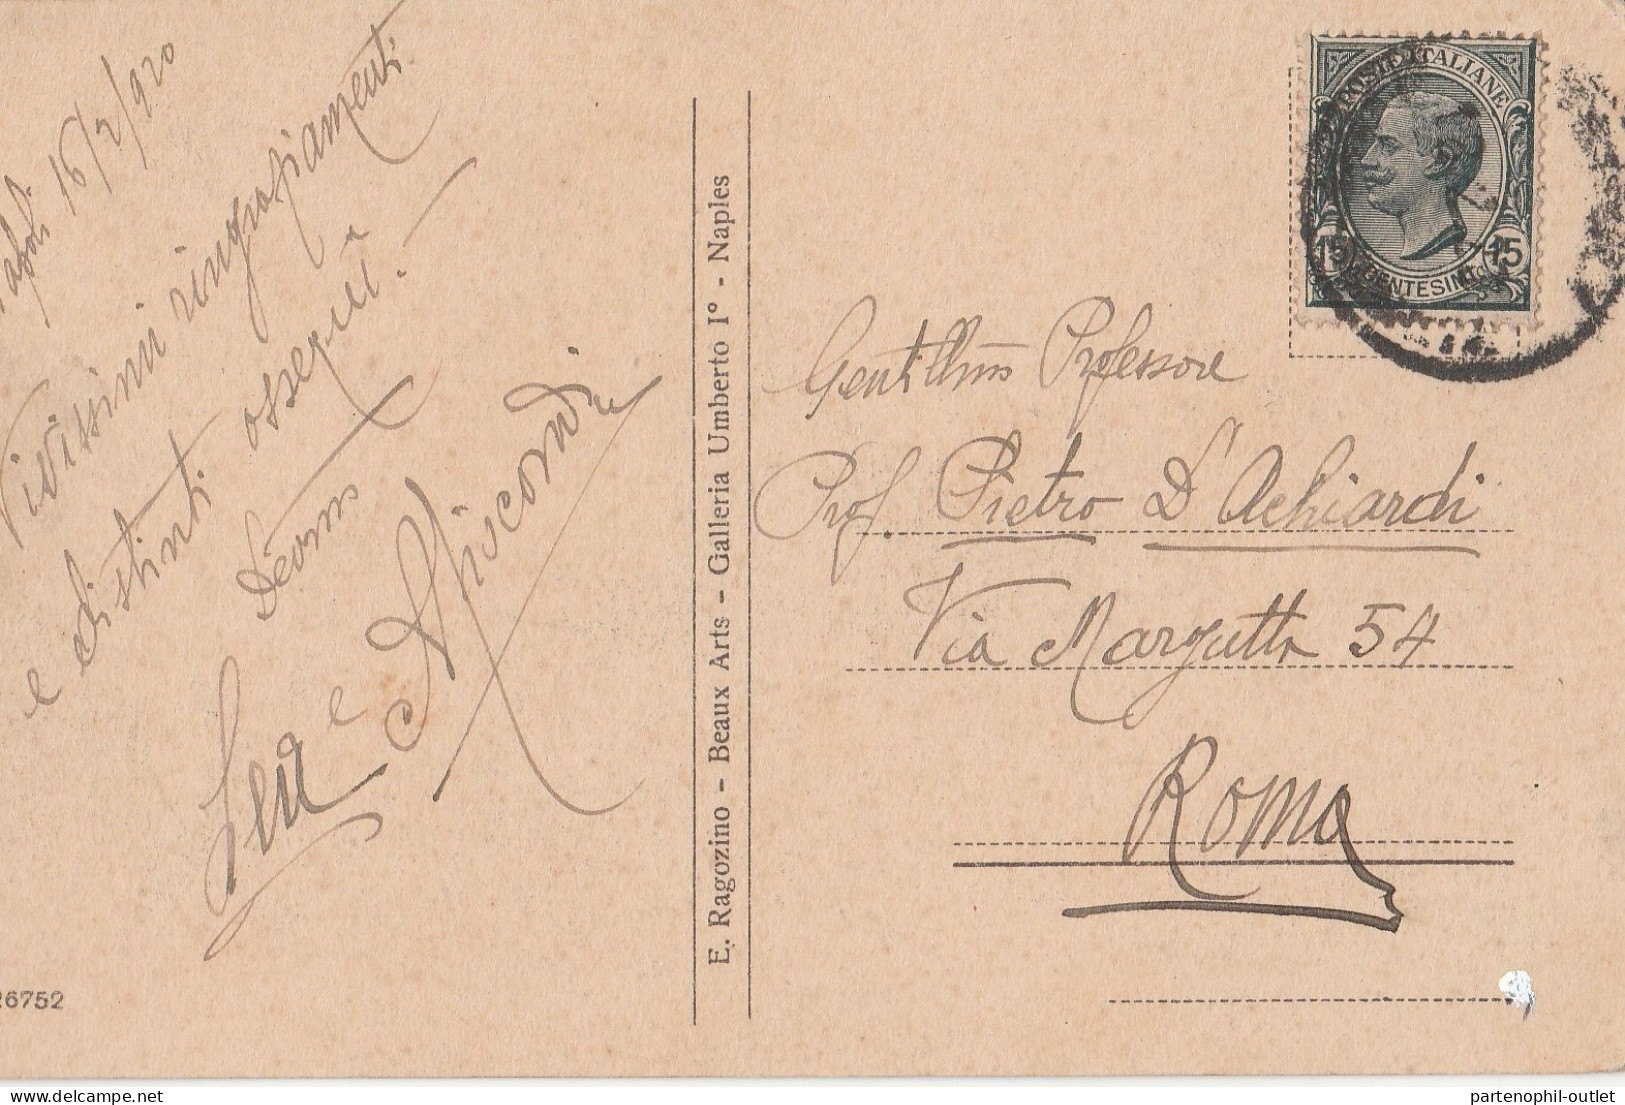 Napoli 16/2/920
Vivissimi ringraziamenti
e distinti ossequi.
Devmo
e
E. Ragozino - Beaux Arts - Galleria Umberto I° - Naples
26752
POSTE ITALIANE
15 15
CENTESIMI
Gentillmo Professore
Prof. Pietro D'Achiardi
Via Margutta 54
Roma
partenophil-outlet